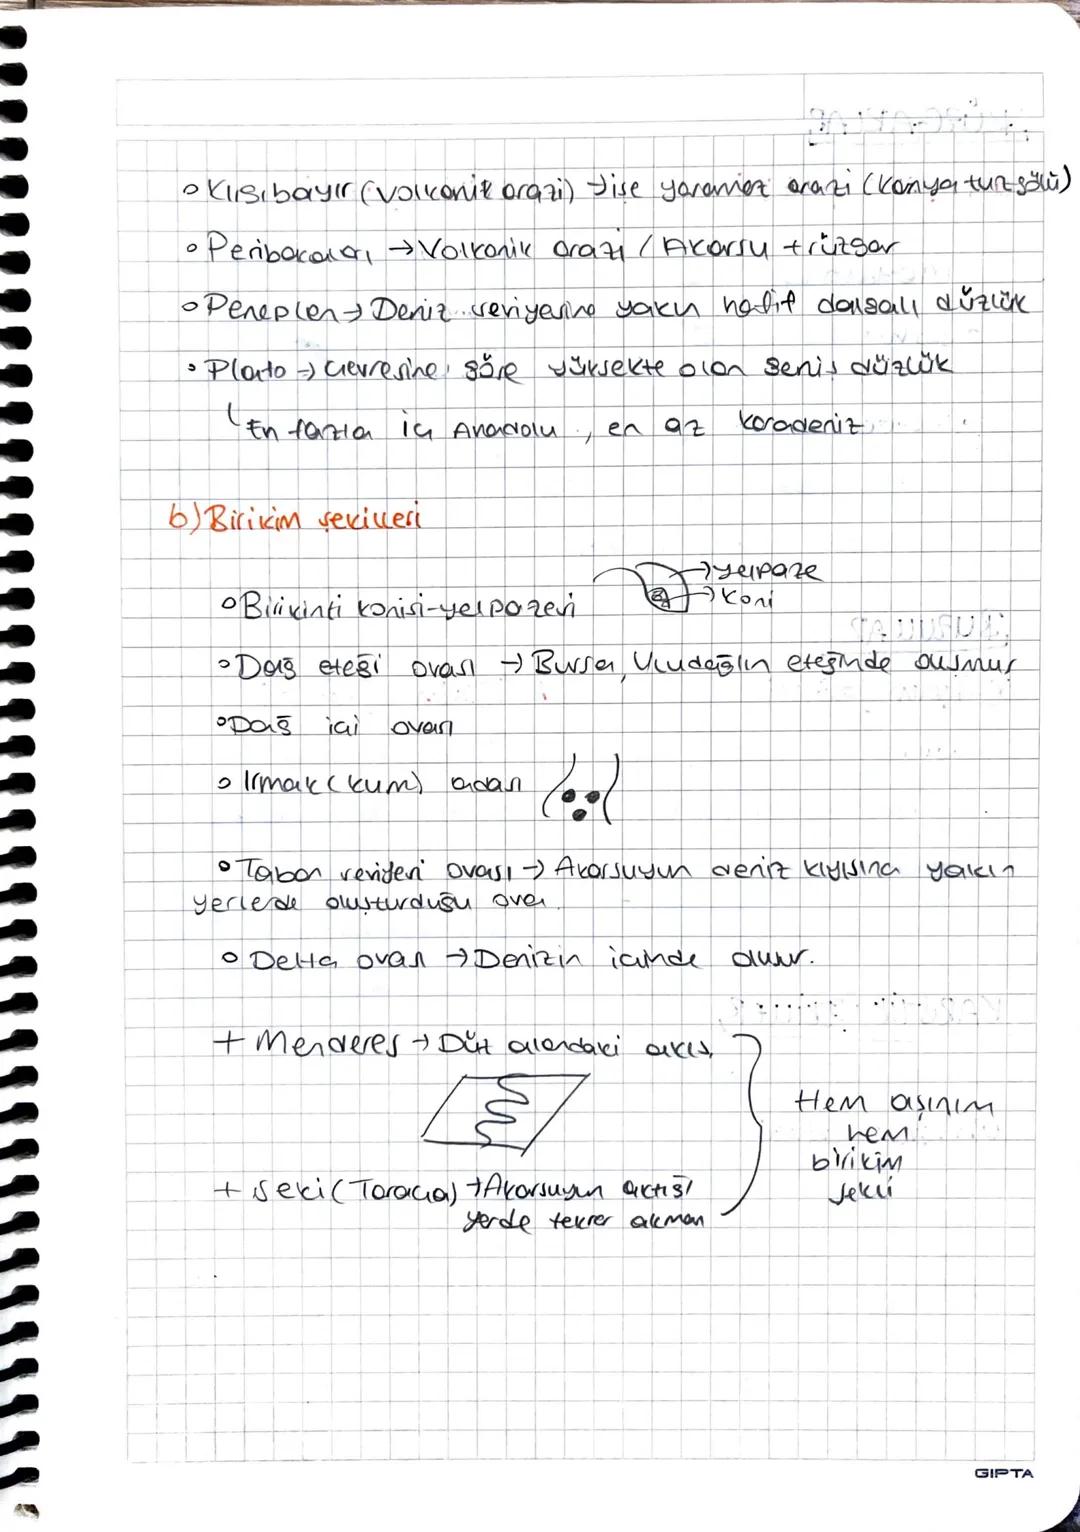 o Kırgıbayır (volkanik arazi) → işe yaramaz arazi (Konya tuz gölü)
o Peribacaları → Volkanik arazi / Akarsu + rüzgar
o Peneplen → Deniz seviyesine yakın hafif dalgalı düzlük
o Plato → Çevresine göre yüksekte olan geniş düzlük
En fazla iç Anadolu, en az karadeniz
b) Birikim şekilleri
→ yelpaze
o Birikinti konisi-yelpazesi → Koni
o Dağ eteği ovası → Bursa, Uludağ'ın eteğinde oluşmuş
o Dağ içi ovası
o Irmak (kum) adası
o Taban seviyesi ovası → Akarsuyun deniz kıyısına yakın
yerlerde oluşturduğu ova.
o Delta ovası → Denizin içinde oluşur.
+ Menderes → Düz alandaki akış
Hem aşınım
hem
birikim
şekli
+ Seki (Taraça) → Akarsuyun aktığı
yerde tekrar akması
GIPTA